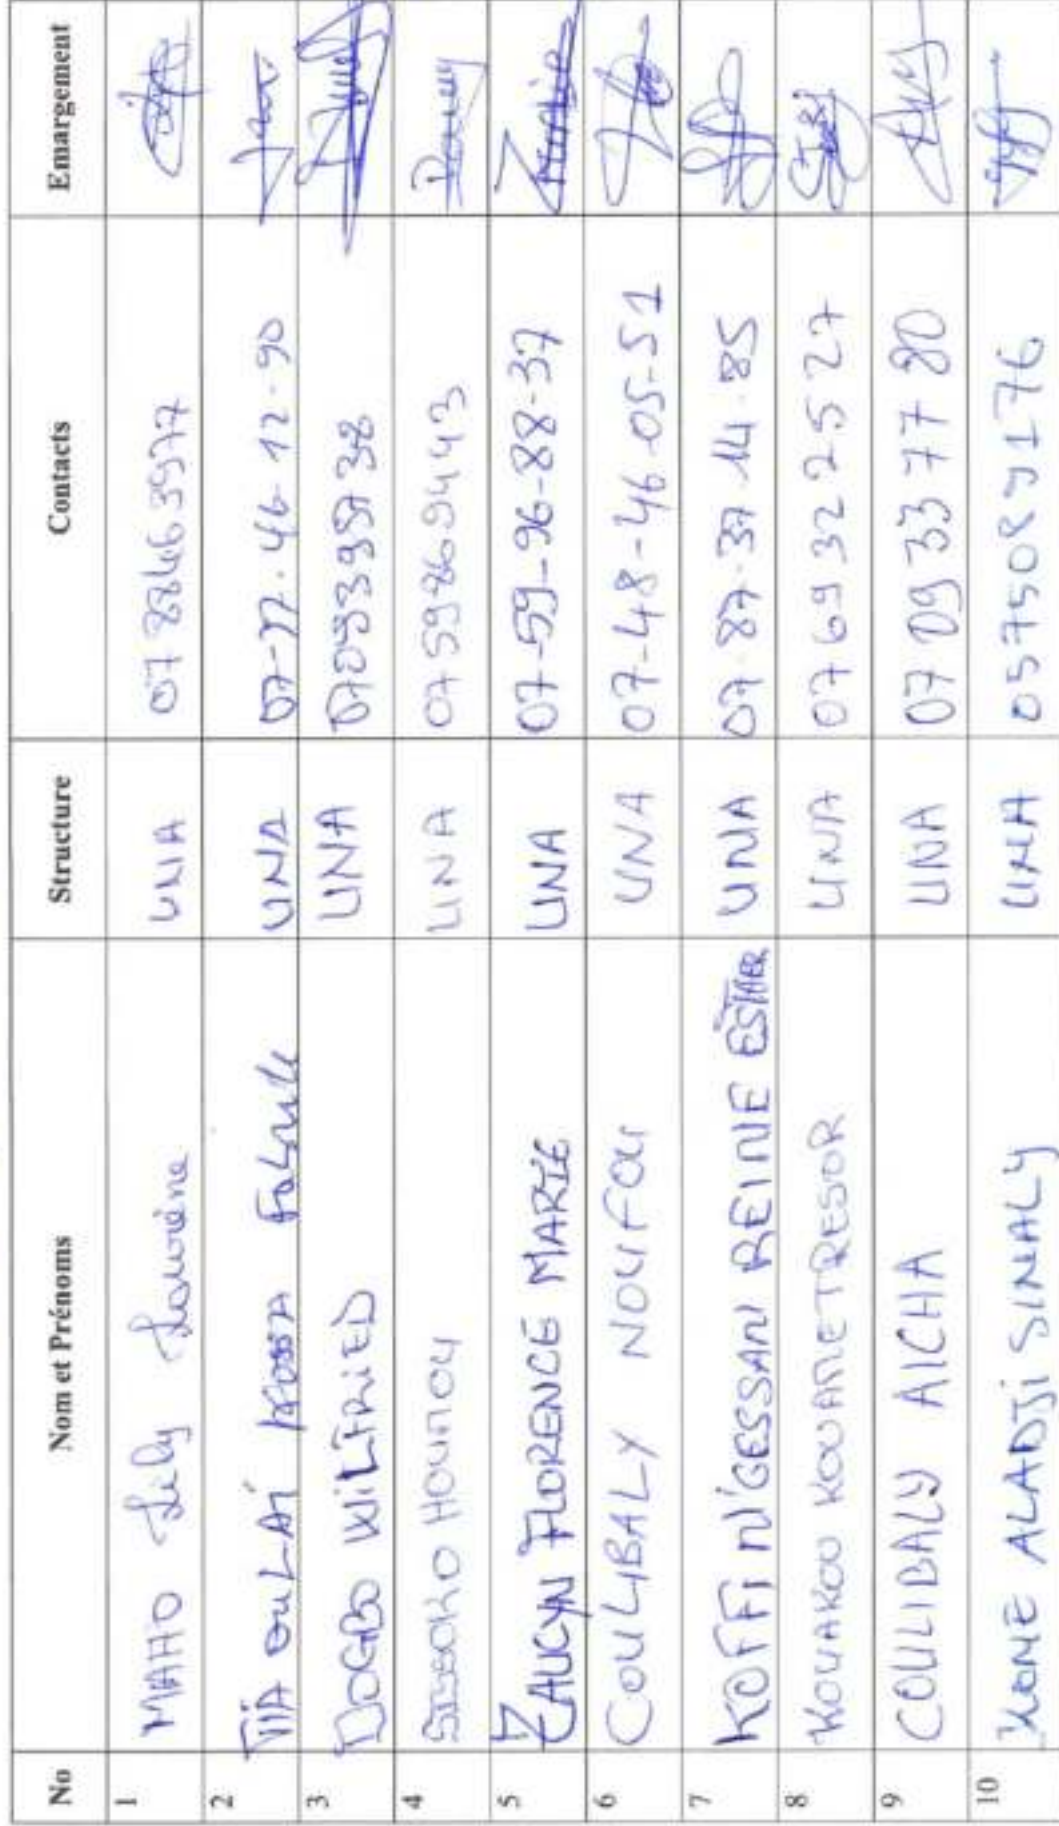 No Nom et Prénoms Structure Contacts Emargement
1 MAHO Lily Laurène UNA 0788463977
2 TIA OULAÏ UNA 07-77-46-12-90
3 DOGBO WILFRIED UNA 0709395738
4 SISSOKO HOUMOU UNA 0759869443
5 ZAUCYN FLORENCE MARIE UNA 07-59-96-88-37
6 COULYBALY NOUFOU UNA 07-48-46-05-51
7 KOFFI N'GESSAN REINE ESTHER UNA 07-87-37-14-85
8 KOUAKOU KOUAME TRESOR UNA 07 69 32 25 27
9 COULIBALY AICHA UNA 07 09 33 77 80
10 KONE ALADJI SINALY UNA 0575089176